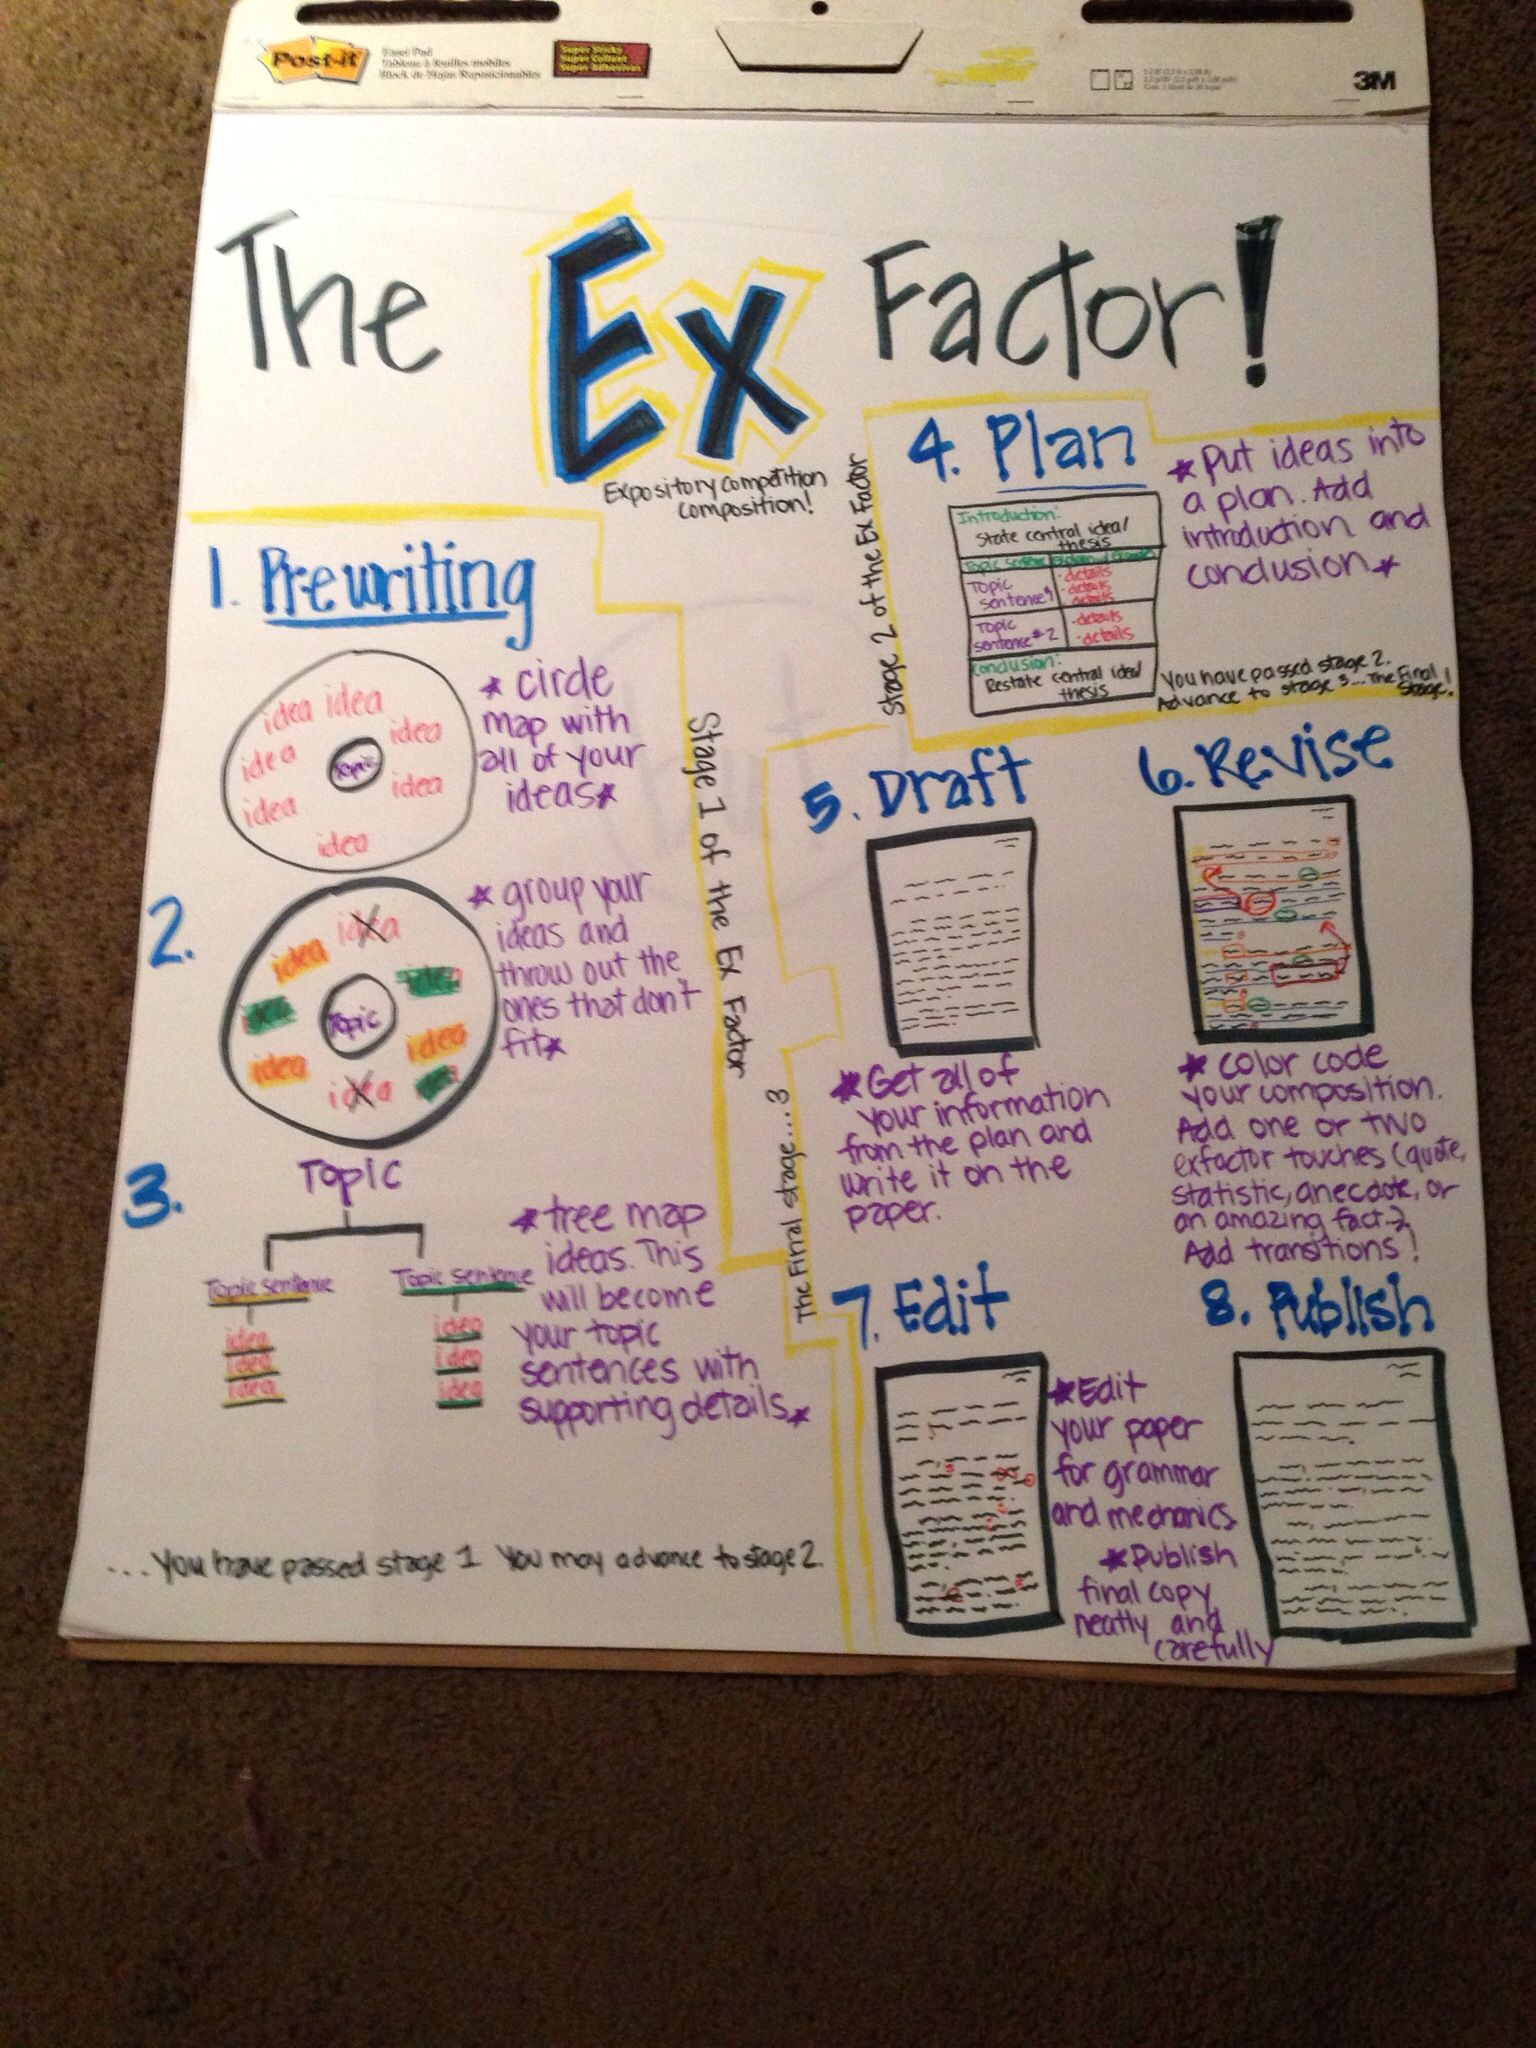 Post-it
Easel Pad
Tableau à feuilles mobiles
Block de Hojas Reposicionables
Super Sticky
Super Collant
Super Adhesivas
3M
The Ex Factor!
Expository competition
composition!
1. Prewriting
idea idea
idea
idea
idea
idea
idea
Topic
* circle
map with
all of your
ideas*
2.
idea
idea
idea
idea
idea
idea
idea
Topic
* group your
ideas and
throw out the
ones that don't
fit*
3.
Topic
Topic sentence
idea
idea
idea
Topic sentence
idea
idea
idea
* tree map
ideas. This
will become
your topic
sentences with
supporting details*
...You have passed stage 1 You may advance to stage 2.
Stage 1 of the Ex Factor
Stage 2 of the Ex Factor
4. Plan
Introduction:
State central idea/
thesis
Topic
sentence
·details
·details
·details
Topic
sentence #2
·details
·details
Conclusion:
Restate central idea/
thesis
* Put ideas into
a plan. Add
introduction and
conclusion*
You have passed stage 2.
Advance to stage 3...The Final
Stage!
The Final stage....3
5. Draft
*Get all of
your information
from the plan and
write it on the
paper.
6. Revise
* color code
your composition.
Add one or two
exfactor touches (quote,
statistic, anecdote, or
an amazing fact.)
Add transitions!
7. Edit
*Edit
your paper
for grammar
and mechanics
8. Publish
*Publish
final copy
neatly and
carefully